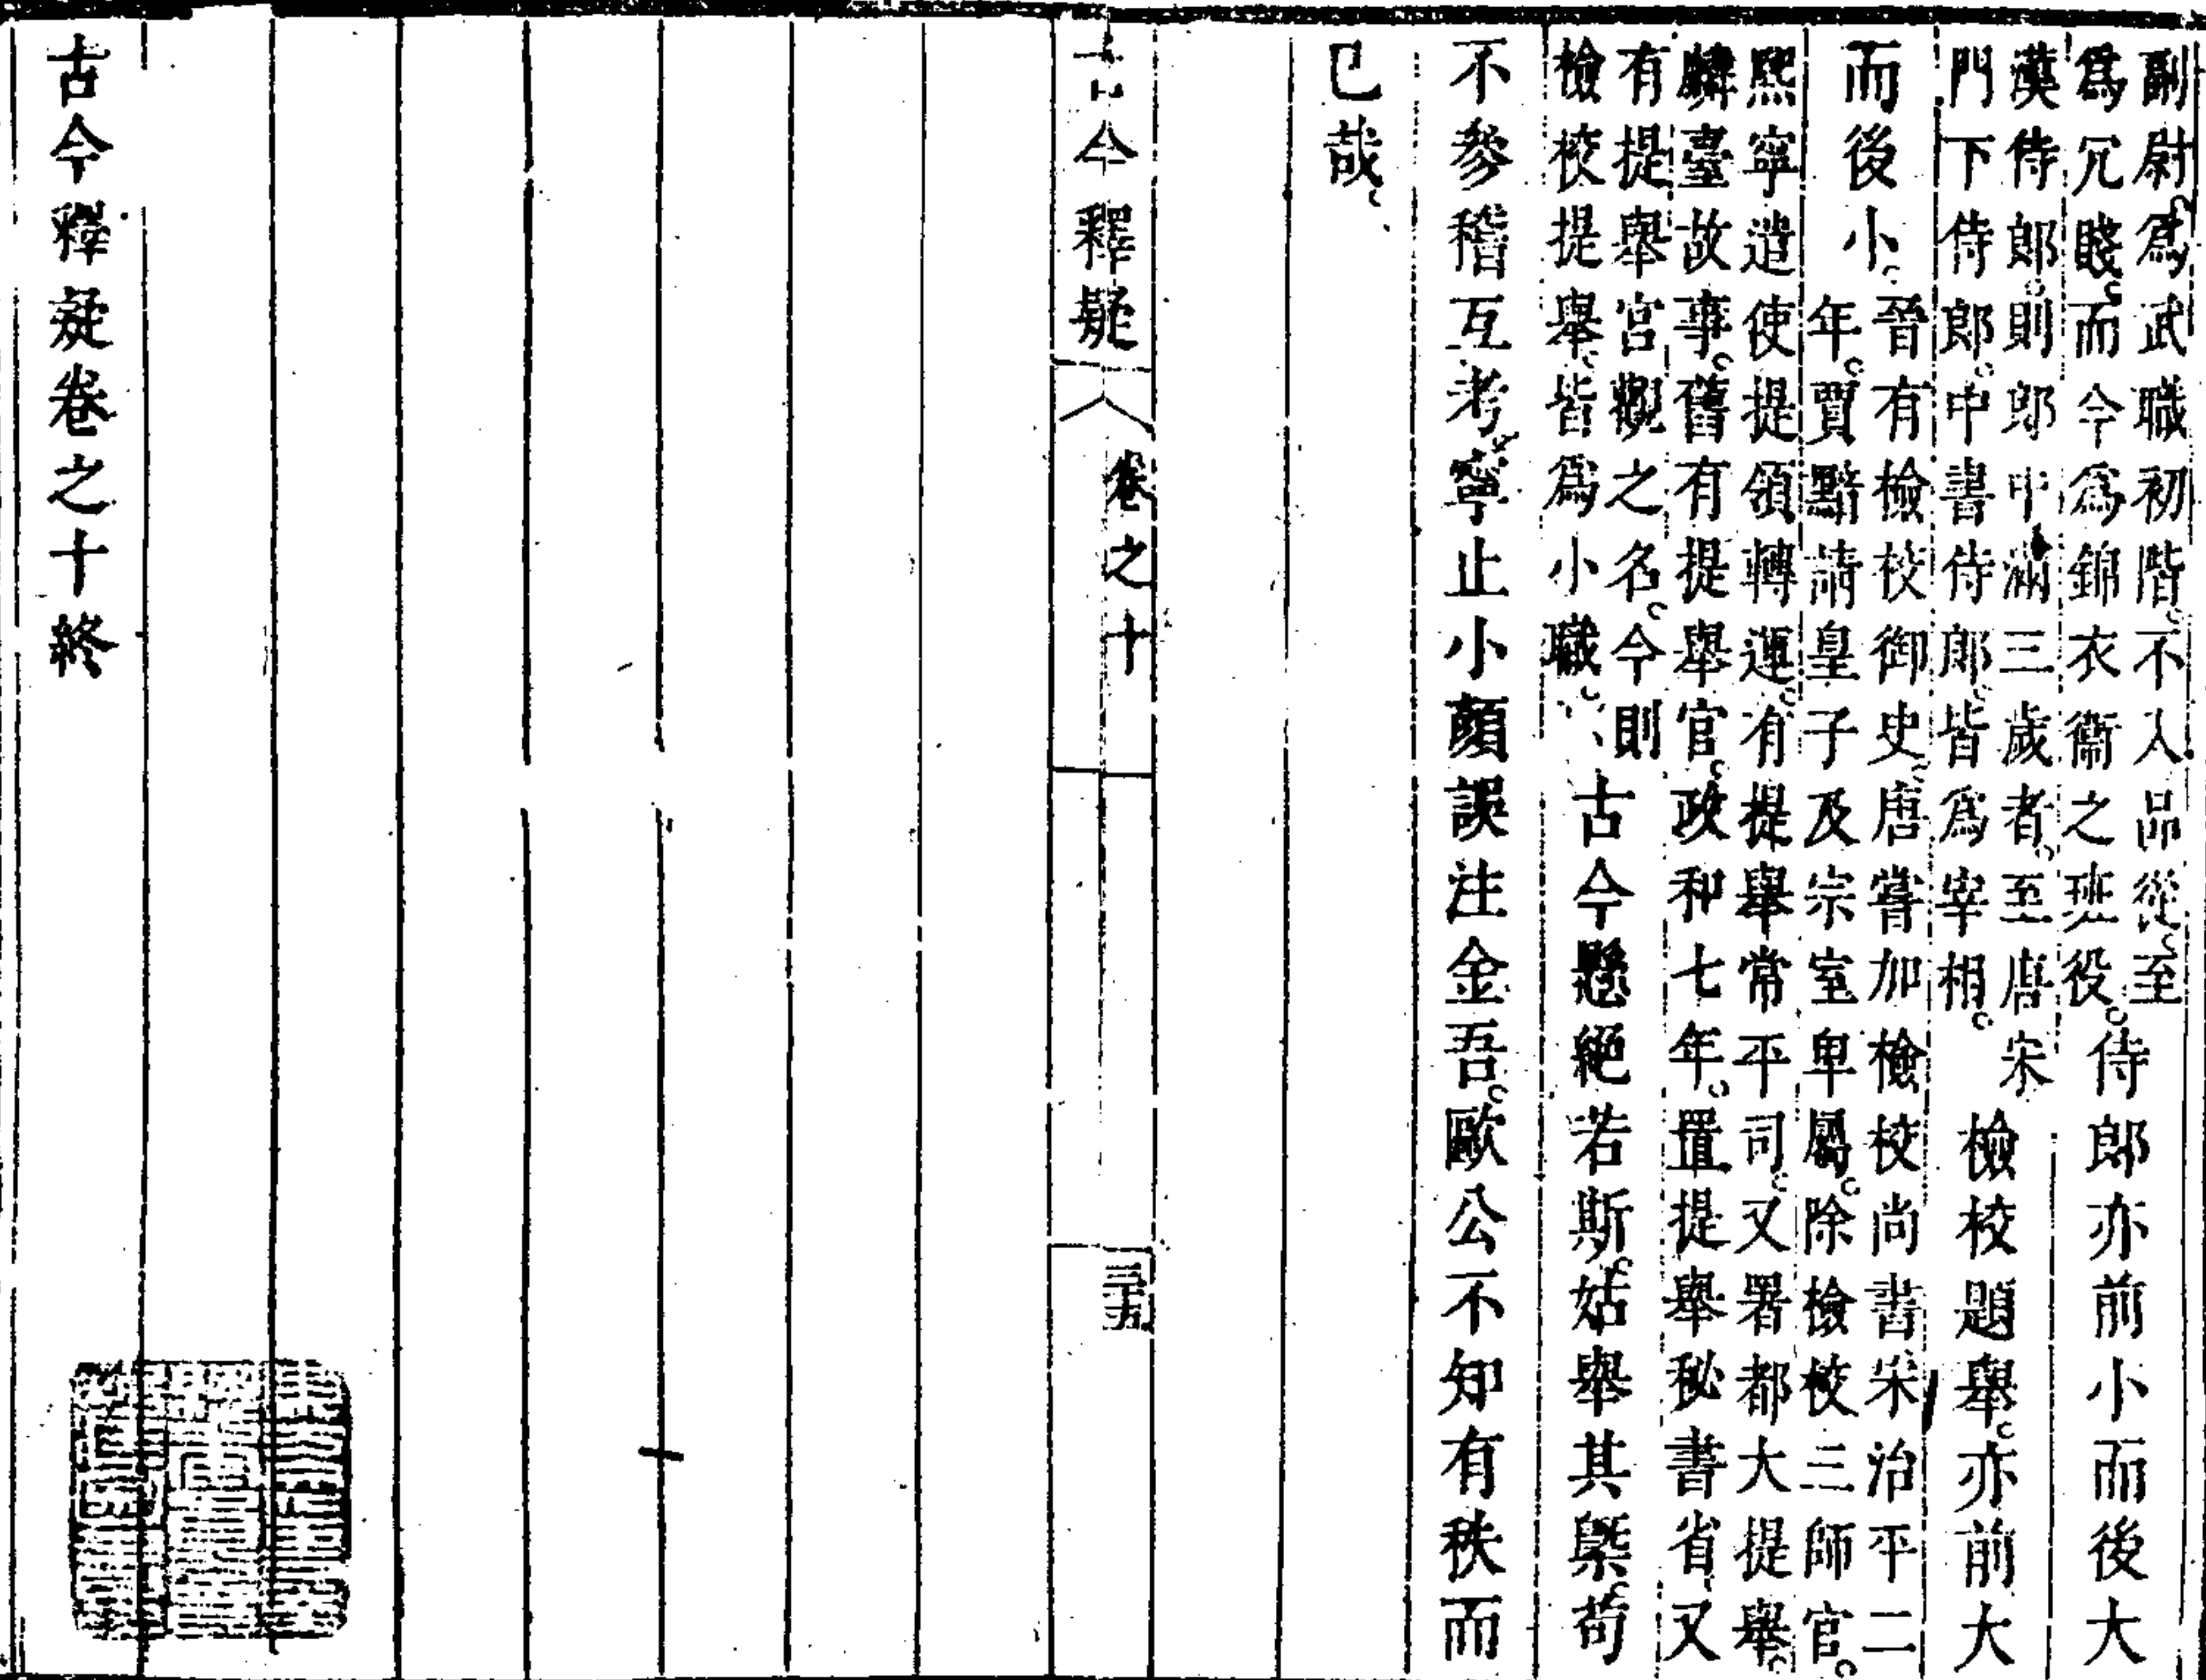 副尉爲武職初階不入品從至
爲冗賤而今爲錦衣衞之班役
侍郎亦前小而後大
漢侍郎則郎中滿三歲者至唐宋
門下侍郎中書侍郎皆爲宰相
檢校題舉亦前大
而後小
晉有檢校御史唐嘗加檢校尚書宋治平二
年賈黯請皇子及宗室卑屬除檢校三師官
熙寧遣使提領轉運有提舉常平司又署都大提舉
麟臺故事舊有提舉官政和七年置提舉秘書省又
有提舉宮觀之名今則
檢校提舉皆爲小職
古今懸絕若斯姑舉其槩苟
不參稽互考寧止小顏誤注金吾歐公不知有秩而
已哉
古今釋疑
卷之十
三十五
古今釋疑卷之十終